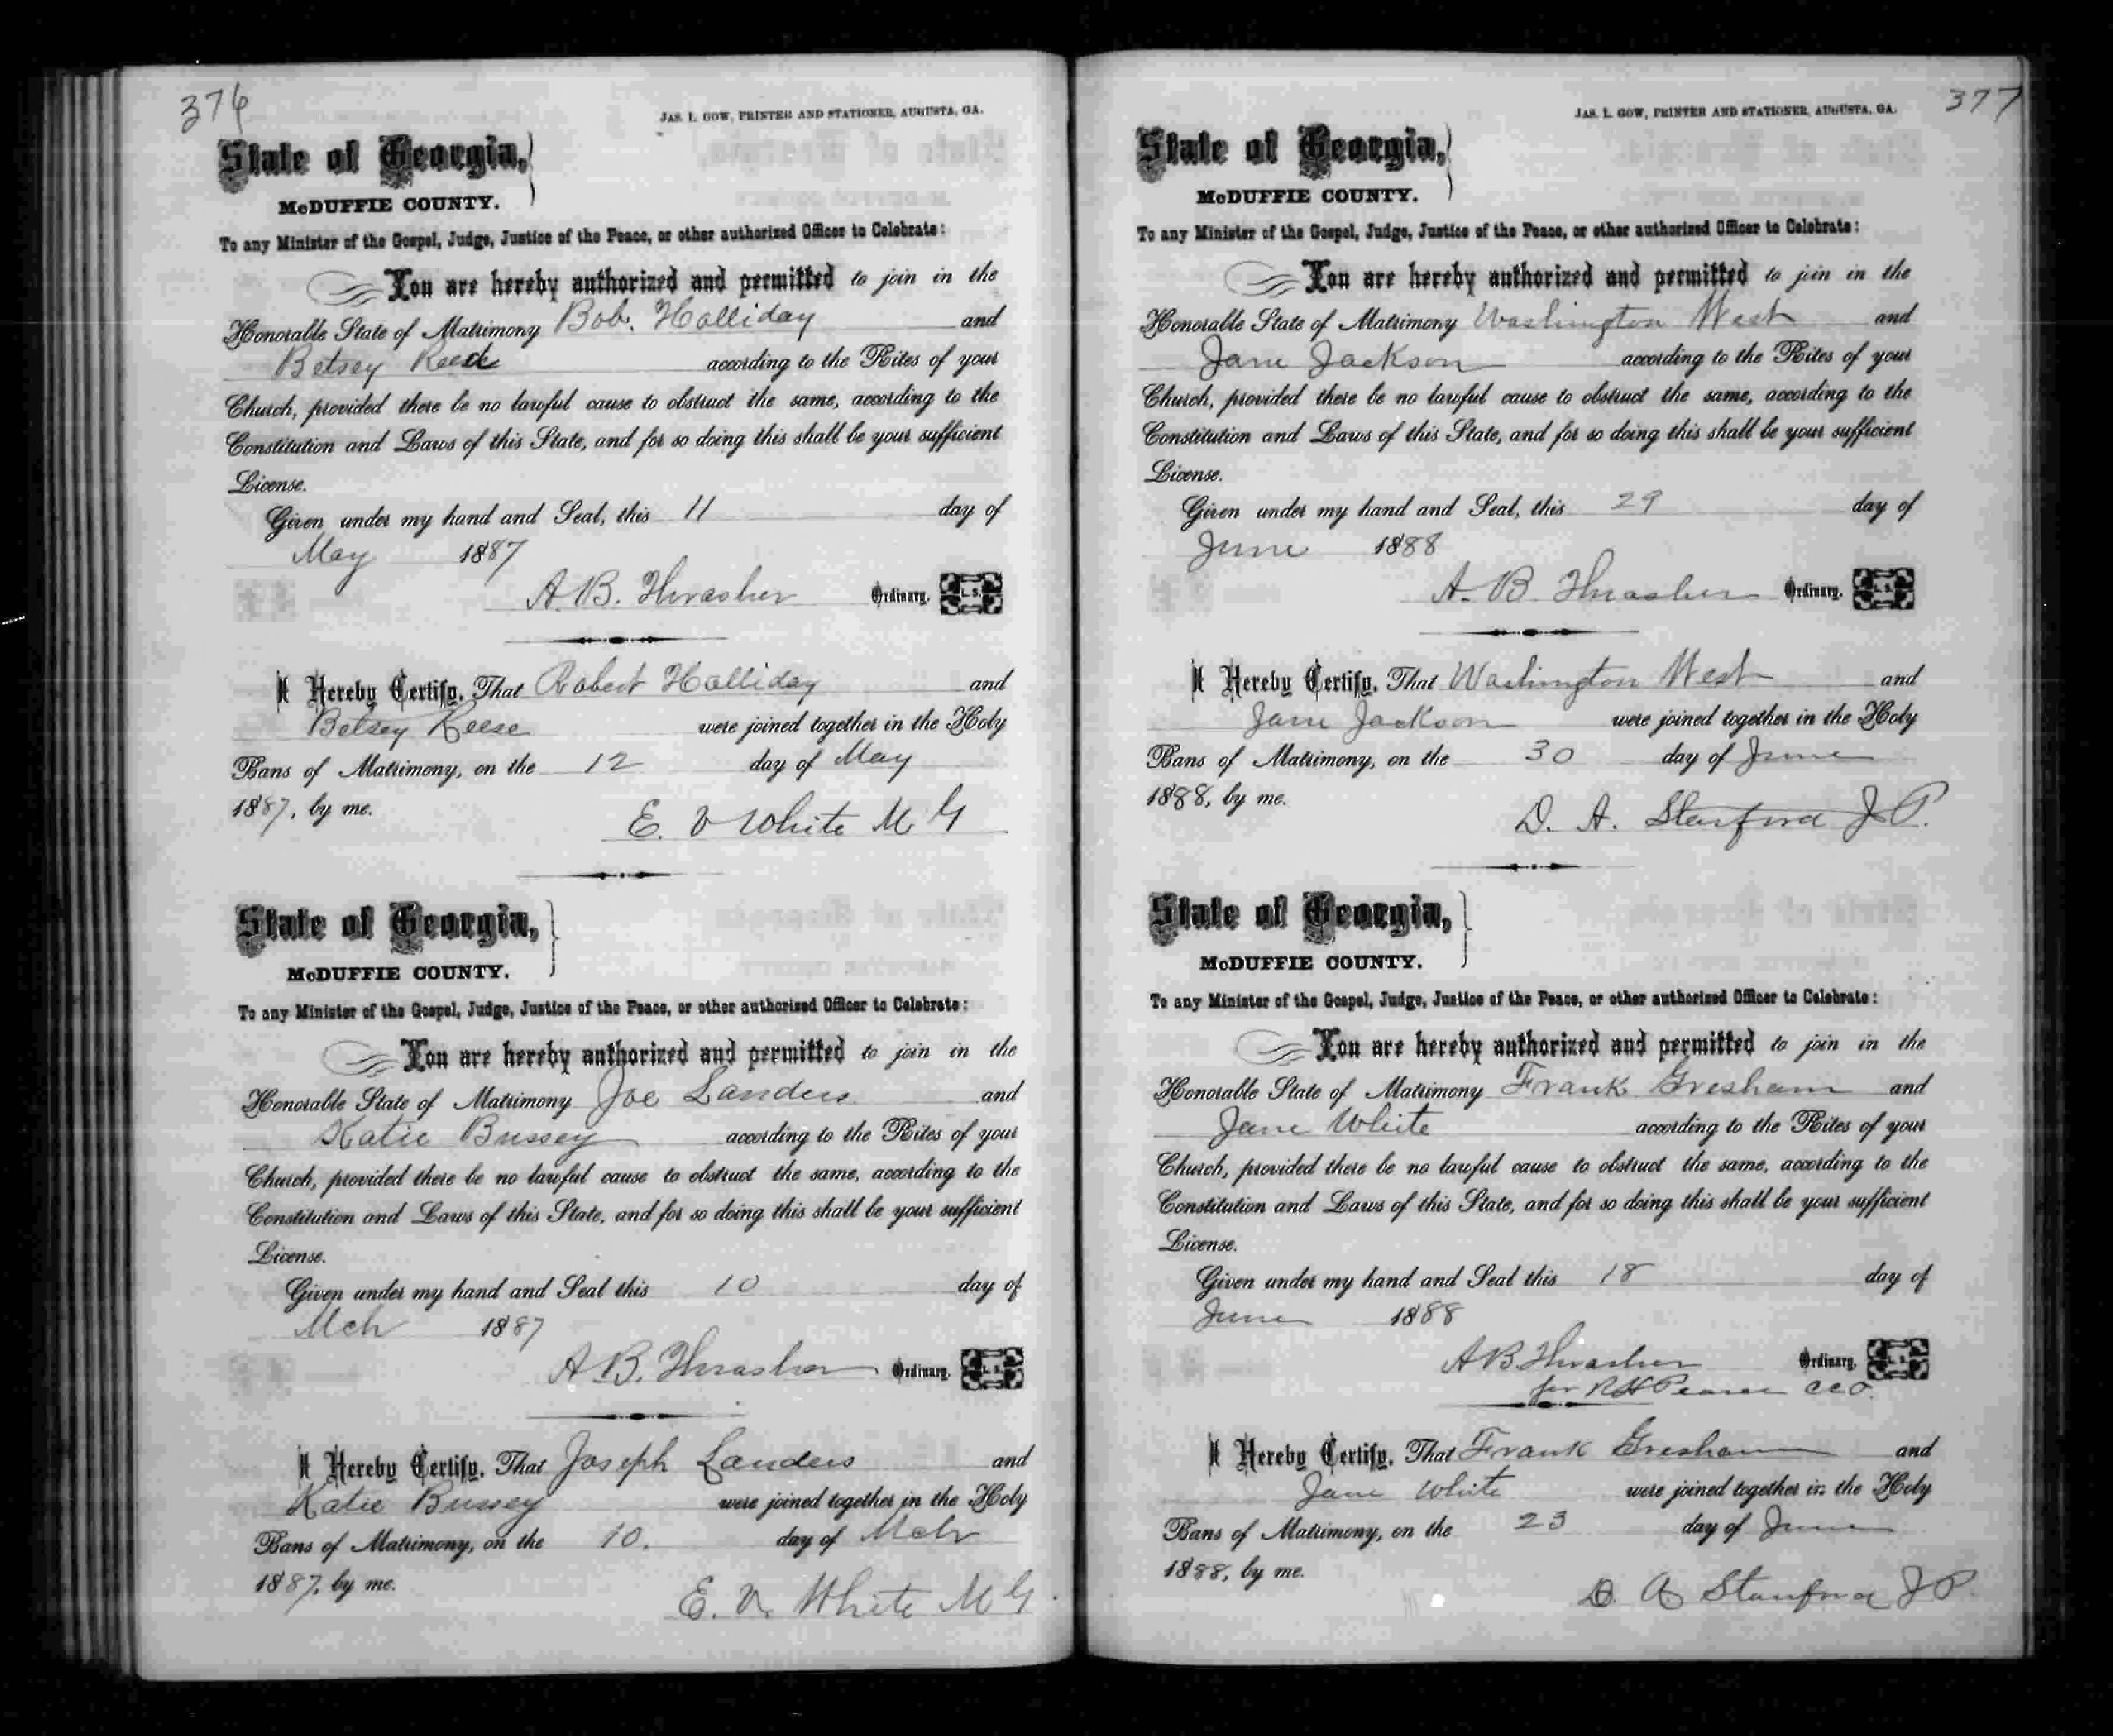 376
JAS. L. GOW, PRINTER AND STATIONER, AUGUSTA, GA.
State of Georgia,
McDUFFIE COUNTY.
To any Minister of the Gospel, Judge, Justice of the Peace, or other authorized Officer to Celebrate:
You are hereby authorized and permitted to join in the
Honorable State of Matrimony Bob. Holliday and
Betsey Reese according to the Rites of your
Church, provided there be no lawful cause to obstruct the same, according to the
Constitution and Laws of this State, and for so doing this shall be your sufficient
License.
Given under my hand and Seal, this 11 day of
May 1887
A. B. Thrasher Ordinary. L. S.
I Hereby Certify, That Robert Holliday and
Betsey Reese were joined together in the Holy
Bans of Matrimony, on the 12 day of May
1887, by me.
E. V White M G
State of Georgia,
McDUFFIE COUNTY.
To any Minister of the Gospel, Judge, Justice of the Peace, or other authorized Officer to Celebrate:
You are hereby authorized and permitted to join in the
Honorable State of Matrimony Joe Landers and
Katie Bussey according to the Rites of your
Church, provided there be no lawful cause to obstruct the same, according to the
Constitution and Laws of this State, and for so doing this shall be your sufficient
License.
Given under my hand and Seal this 10 day of
Mch 1887
A. B. Thrasher Ordinary. L. S.
I Hereby Certify, That Joseph Landers and
Katie Bussey were joined together in the Holy
Bans of Matrimony, on the 10. day of Mch
1887, by me.
E. V. White M G
377
JAS. L. GOW, PRINTER AND STATIONER, AUGUSTA, GA.
State of Georgia,
McDUFFIE COUNTY.
To any Minister of the Gospel, Judge, Justice of the Peace, or other authorized Officer to Celebrate:
You are hereby authorized and permitted to join in the
Honorable State of Matrimony Washington West and
Jane Jackson according to the Rites of your
Church, provided there be no lawful cause to obstruct the same, according to the
Constitution and Laws of this State, and for so doing this shall be your sufficient
License.
Given under my hand and Seal, this 29 day of
June 1888
A. B Thrasher Ordinary. L. S.
I Hereby Certify, That Washington West and
Jane Jackson were joined together in the Holy
Bans of Matrimony, on the 30 day of June
1888, by me.
D. A. Stanford J P.
State of Georgia,
McDUFFIE COUNTY.
To any Minister of the Gospel, Judge, Justice of the Peace, or other authorized Officer to Celebrate:
You are hereby authorized and permitted to join in the
Honorable State of Matrimony Frank Gresham and
Jane White according to the Rites of your
Church, provided there be no lawful cause to obstruct the same, according to the
Constitution and Laws of this State, and for so doing this shall be your sufficient
License.
Given under my hand and Seal this 18 day of
June 1888
A B Thrasher Ordinary. L. S.
for R H Pearce C C O.
I Hereby Certify, That Frank Gresham and
Jane White were joined together in the Holy
Bans of Matrimony, on the 23 day of June
1888, by me.
D. A Stanford J P.